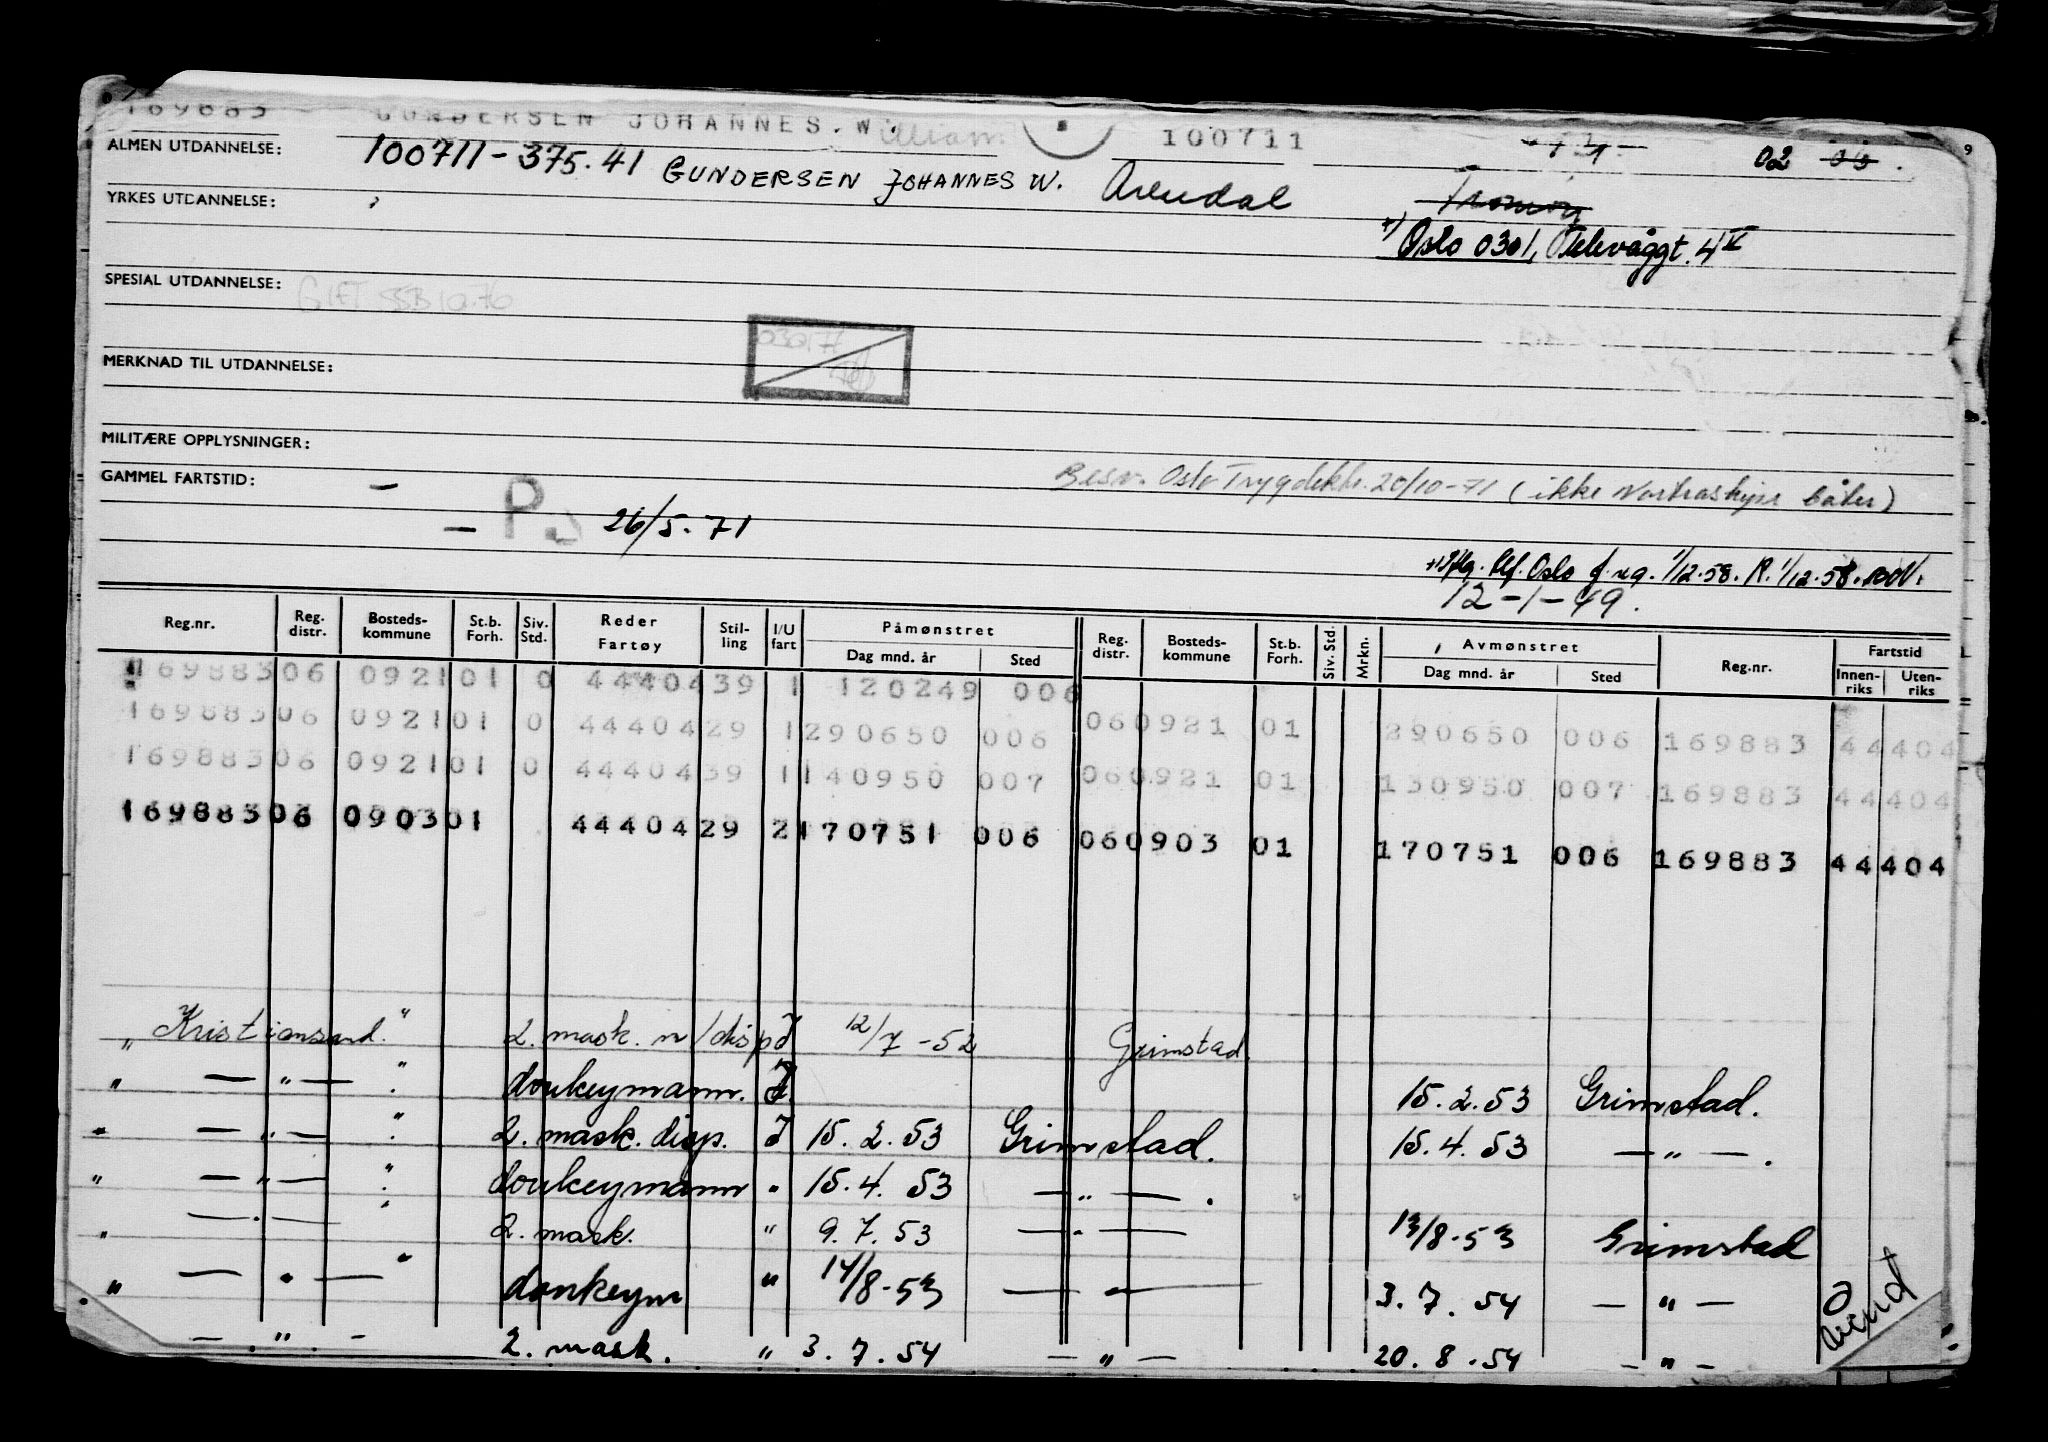 169883 GUNDERSEN JOHANNES.W. illiam 100711 02 03
ALMEN UTDANNELSE: 100711-375.41 GUNDERSEN JOHANNES W. Arendal Tromøy
YRKES UTDANNELSE:
Oslo 0301, Telavåggt. 4 V
SPESIAL UTDANNELSE: GIFT SSB 10.76
MERKNAD TIL UTDANNELSE:
MILITÆRE OPPLYSNINGER:
GAMMEL FARTSTID: – Besv. Oslo Trygdekto. 20/10-71 (ikke Nortraships båter)
– P. 26/5.71
Oslo 1/12.58. R. 1/12.58.
12-1-49.
Reg.nr. Reg. distr. Bosteds-kommune St.b. Forh. Siv. Std. Reder Fartøy Stil-ling I/U fart Påmønstret Dag mnd. år Sted Reg. distr. Bosteds-kommune St.b. Forh. Siv. Std. Mrkn. Avmønstret Dag mnd. år Sted Reg.nr. Fartstid Innen-riks Uten-riks
169883 06 0921 01 0 44404 39 1 120249 006
169883 06 0921 01 0 44404 29 1 290650 006 06 0921 01 290650 006 169883 44404
169883 06 0921 01 0 44404 39 1 140950 007 06 0921 01 130950 007 169883 44404
169883 06 0903 01 44404 29 2 170751 006 06 0903 01 170751 006 169883 44404
„ Kristiansand. " 2. mask. m/disp J 12/7-52 Grimstad.
" — " — " donkeymann. J 15.2.53 Grimstad.
" — " — " 2. mask. disp. J 15.2.53 Grimstad. 15.4.53 — " —.
" — " — " donkeymann " 15.4.53 — " —.
" — " — " 2. mask. " 9.7.53 — " — 13/8-53 Grimstad
" — " — " donkeym " 14/8-53 — " — 3.7.54 — " —
— " — 2. mask. " 3.7.54 — " — 20.8.54 — " —
Vend